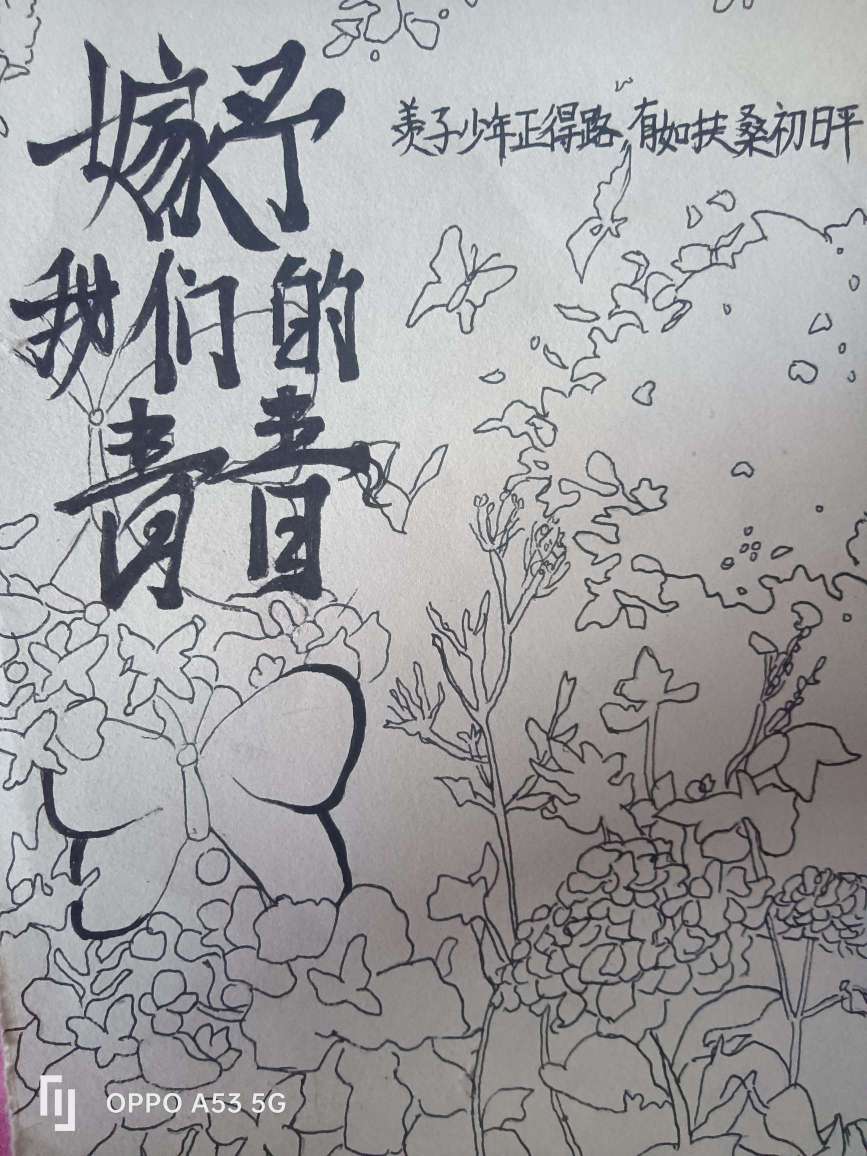 嫁予
我们的
青青
羡子少年正得路,有如扶桑初日升
OPPO A53 5G